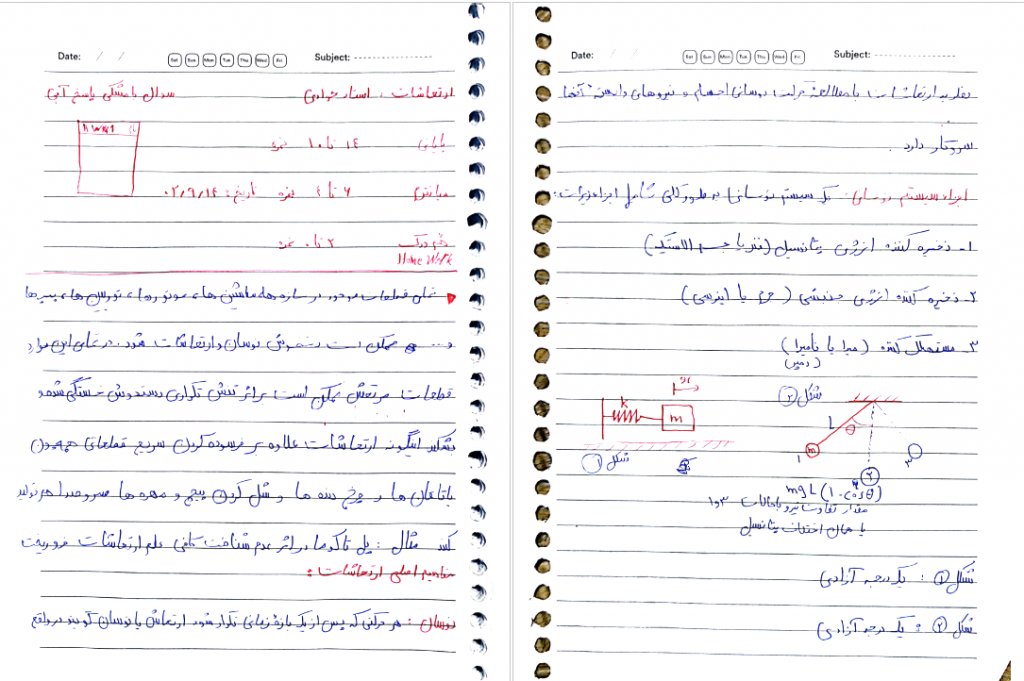 Date: / / Sat Sun Mon Tue Thu Wed Fri Subject:
ارتعاشات، استاد جوادی
سوال با مشکی پاسخ آبی
HW#1
پایانی ۱۴ تا ۱۰ نمره
میانترم ۶ تا ۴ نمره تاریخ: ۰۲/۹/۱۴
۲ تا ۰ نمره
Home Work
تمامی قطعات موجود در سازه ها، ماشین ها، موتورها، توربین ها، پمپ ها
و... ممکن است دستخوش نوسان و ارتعاشات شود. در تمامی این موارد
قطعات مرتعش ممکن است بر اثر تنش تکراری دستخوش خستگی شده و
بشکند اینگونه ارتعاشات علاوه بر فرسوده کردن سریع قطعاتی همچون
یاتاقان ها و چرخ دنده ها و شل کردن پیچ و مهره ها سروصدا هم تولید
کند مثال: پل تاکوما در اثر عدم شناخت کافی علم ارتعاشات فرو ریخت
مفاهیم اصلی ارتعاشات:
نوسان: هر حرکتی که پس از یک بازه زمانی تکرار شود ارتعاش یا نوسان گویند در واقع
Date: / / Sat Sun Mon Tue Thu Wed Fri Subject:
نظریه ارتعاشات با مطالعه حرکت نوسانی اجسام و نیروهای وابسته آنها
سروکار دارد.
اجزاء سیستم نوسانی: یک سیستم نوسانی به طور کلی شامل اجزاء زیر است:
۱- ذخیره کننده انرژی پتانسیل (فنر یا جسم الاستیک)
۲- ذخیره کننده انرژی جنبشی (جرم یا اینرسی)
۳- مستهلک کننده (میرا یا نامیرا)
(دمپر)
x
k
m
شکل ۱
شکل ۲
L
θ
m
۱
۲
۳
mgL(1-cosθ)
مقدار تفاوت نیرو با حالات ۳ و ۱
یا همان اختلاف پتانسیل
شکل ۱: یک درجه آزادی
شکل ۲: یک درجه آزادی